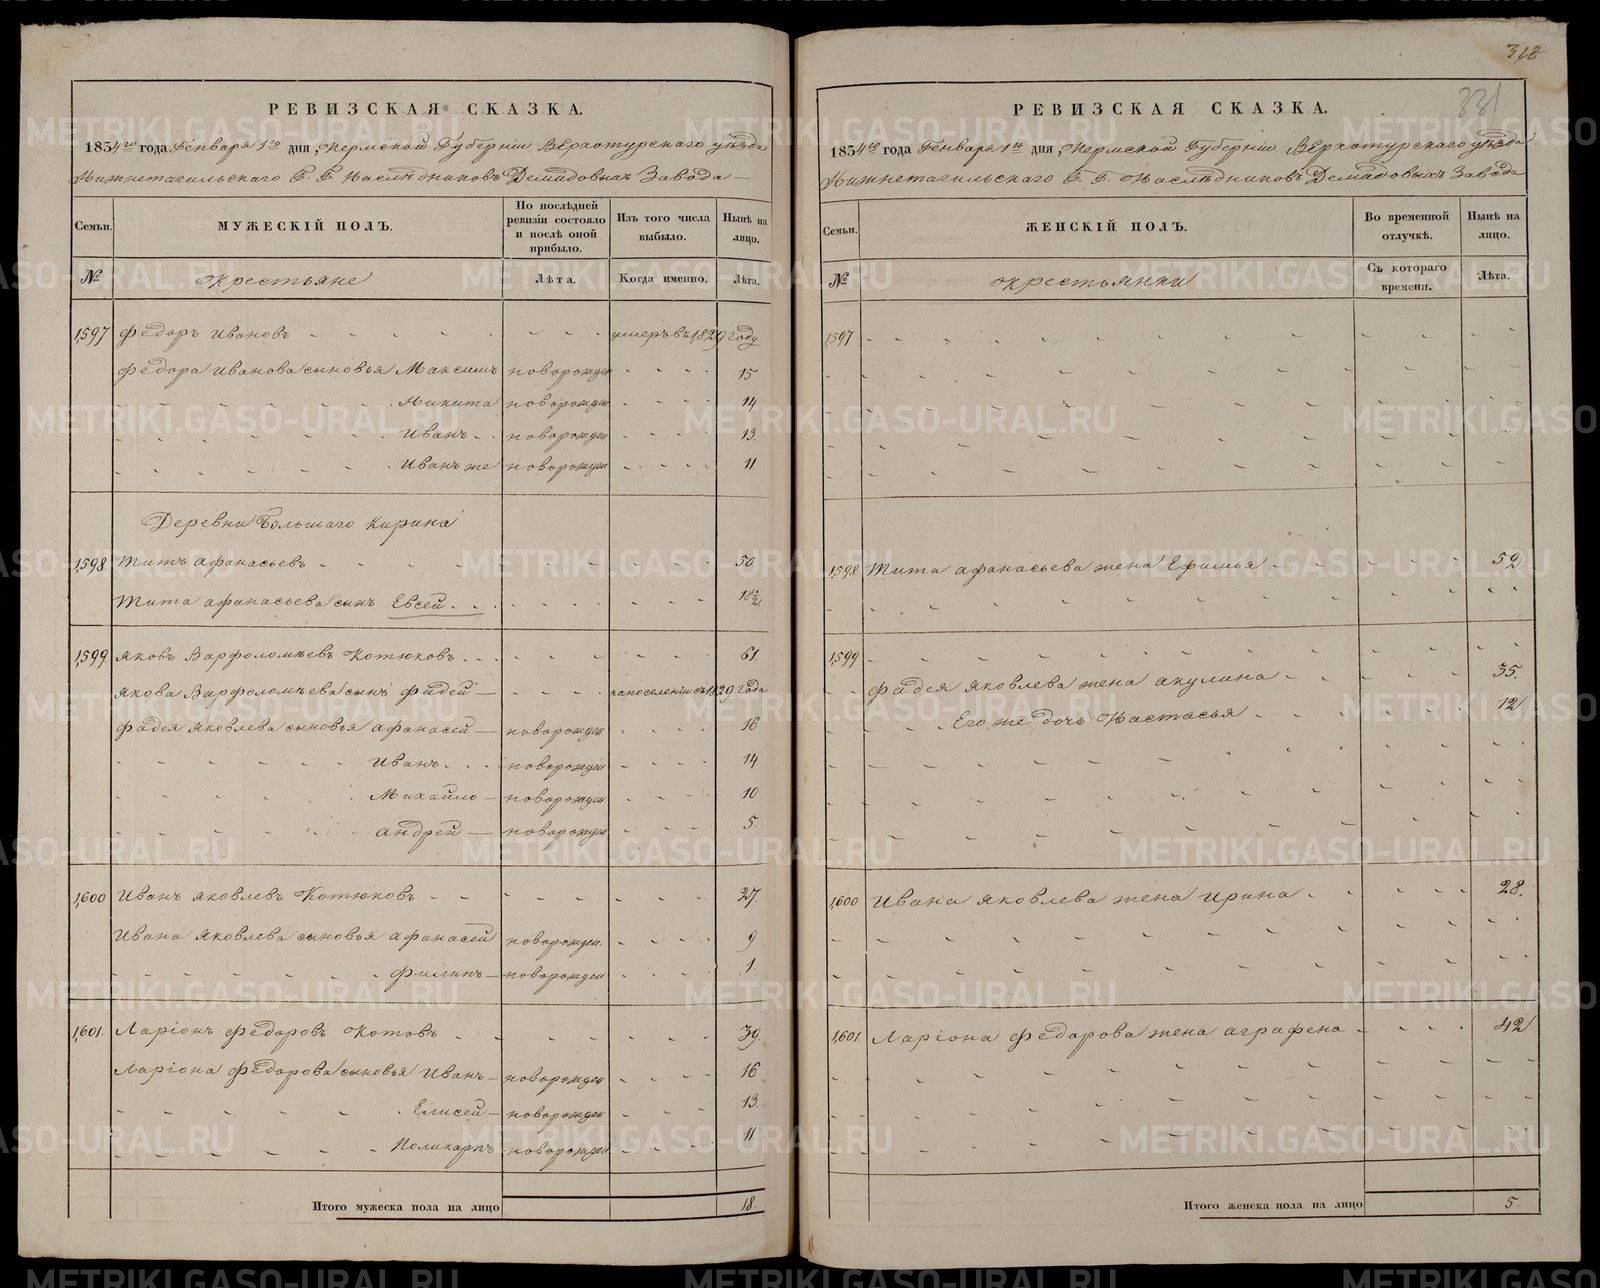 РЕВИЗСКАЯ СКАЗКА.
1834го года Генваря 1го дня, Пермской Губерніи Верхотурскаго уѣзда
Нижнетагильскаго Г. Г. Наслѣдниковъ Демидовыхъ Завода
Семьи. МУЖЕСКІЙ ПОЛЪ. По послѣдней ревизіи состояло и послѣ оной прибыло. Изъ того числа выбыло. Нынѣ на лицо.
№ Крестьяне Лѣта. Когда именно. Лѣта.
1,597 Федоръ Ивановъ умеръ въ 1,829 году
Федора Иванова сыновья Максимъ новорожден 15
Никита новорожден 14
Иванъ новорожден 13.
Иванъ же новорожден 11
Деревни Большаго Кирина
1,598. Титъ Афанасьевъ 50.
Тита Афанасьева сынъ Евсей 18½
1,599. Яковъ Варфоломѣевъ Котюковъ 61
Якова Варфоломѣева сынъ Фадей на поселеніи съ 1,829 года
Фадея Яковлева сыновья Афанасей новорожден 16
Иванъ новорожден 14.
Михайло новорожден 10
Андрей новорожден 5.
1,600 Иванъ Яковлевъ Котюковъ 27.
Ивана Яковлева сыновья Афанасей новорожден. 9
Филипъ новорожден 1.
1,601. Ларіонъ Федоровъ Котовъ 39.
Ларіона Федорова сыновья Иванъ новорожден 16
Елисей новорожден 13.
Поликарпъ новорожден 11.
Итого мужеска пола на лицо 18.
318
331
РЕВИЗСКАЯ СКАЗКА.
1834го года Генваря 1го дня, Пермской Губерніи Верхотурскаго уѣзда
Нижнетагильскаго Г. Г. Наслѣдниковъ Демидовыхъ Завода
Семьи. ЖЕНСКІЙ ПОЛЪ. Во временной отлучкѣ. Нынѣ на лицо.
№ Крестьянки Съ котораго времени. Лѣта.
1,597
1,598 Тита Афанасьева жена Ефимья 52.
1,599
Фадея Яковлева жена Акулина 35.
Его же дочь Настасья 12
1,600 Ивана Яковлева жена Ирина 28.
1,601. Ларіона Федорова жена Аграфена 42
Итого женска пола на лицо 5.
METRIKI.GASO-URAL.RU